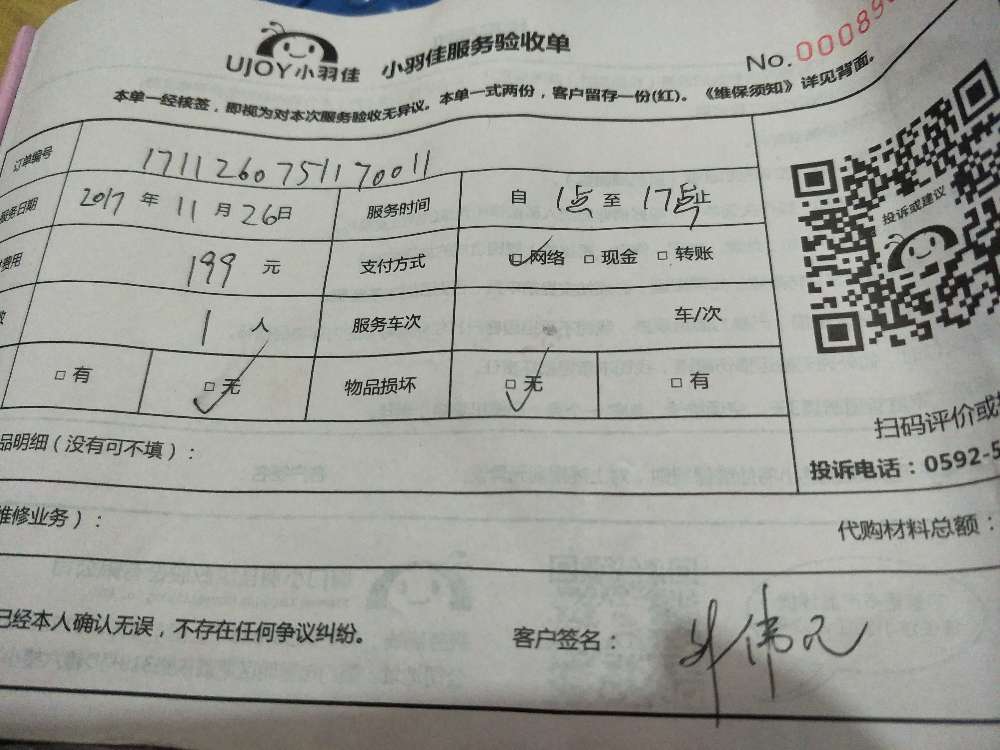 UJOY小羽佳 小羽佳服务验收单
No.00089
本单一经核签，即视为对本次服务验收无异议。本单一式两份，客户留存一份(红)。《维保须知》详见背面。
订单编号 171126075117 0011
服务日期 2017 年 11 月 26 日 服务时间 自 1点 至 17点 止
费用 199 元 支付方式 □网络 □现金 □转账
数 1 人 服务车次 车/次
□有 □无 物品损坏 □无 □有
投诉或建议
扫码评价或
品明细（没有可不填）：
投诉电话：0592-5
维修业务）：
代购材料总额：
已经本人确认无误，不存在任何争议纠纷。 客户签名：